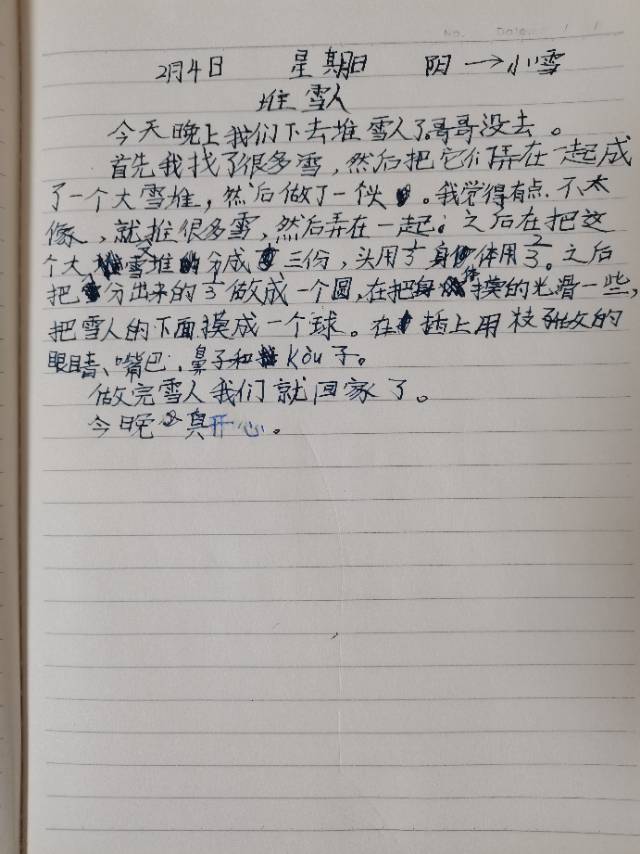 No. Date. / /
2月4日 星期日 阴→小雪
堆雪人
今天晚上我们下去堆雪人了。哥哥没去。
首先我找了很多雪,然后把它们弄在一起成
了一个大雪堆,然后做了一个头。我觉得有点不太
像,就推很多雪,然后弄在一起。之后在把这
个大雪堆分成三份,头用1/3身体用2/3。之后
把分出来的1/3做成一个圆,在把身体摸的光滑一些,
把雪人的下面摸成一个球。在插上用枝子做的
眼睛、嘴巴、鼻子和kòu子。
做完雪人我们就回家了。
今晚真开心。